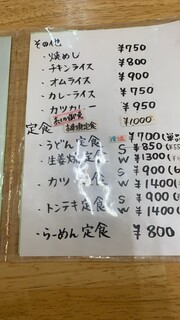 その他
・焼めし ¥750
・チキンライス ¥800
・オムライス ¥900
・カレーライス ¥750
・カツカレー ¥950
¥1000
定食 ¥700
・うどん定食 S ¥850
・生姜焼定食 W ¥1300
・カツ定食 S ¥900
W ¥1400
・トンテキ定食 S ¥900
W ¥1400
・らーめん定食 ¥800